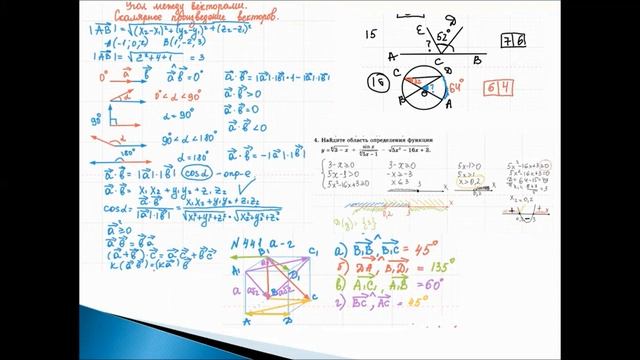 Угол между векторами.
Скалярное произведение векторов.
|AB| = √(x₂-x₁)²+(y₂-y₁)²+(z₂-z₁)²
A(-1;0;2) B(1;-2;3)
|AB| = √2²+4+1 = 3
0° a b a^b=0°
a·b=|a|·|b|·1=|a|·|b|
α 0°<α<90°
a·b>0
90°
a·b=0
α 90°<α<180°
a·b<0
180° α=180°
a·b=-|a|·|b|
a·b=|a|·|b| cosα - опр-е
a·b = x₁x₂+y₁y₂+z₁z₂
cosα = a·b / |a|·|b| = x₁x₂+y₁y₂+z₁z₂ / √x₁²+y₁²+z₁²·√x₂²+y₂²+z₂²
a²≥0
a·b=b·a
(a+b)·c=a·c+b·c
k(a·b)=(ka)·b
15
E D
? 52°
A C B
76
16
C D
B A
64°
64
4. Найдите область определения функции
3-x≥0
5x-1>0
5x²-16x+3≥0
3-x≥0
-x≥-3
x≤3
5x-1>0
5x>1
x>0,2
5x²-16x+3≥0
x₂=0,2
0,2 3
N 441 a-2
B₁ C₁
A₁ D₁
B C
A D
a a√2 a√2
а) B₁B, B₁C = 45°
б) DA, B₁D₁ = 135°
в) A₁C₁, A₁B = 60°
г) BC, AC = 45°